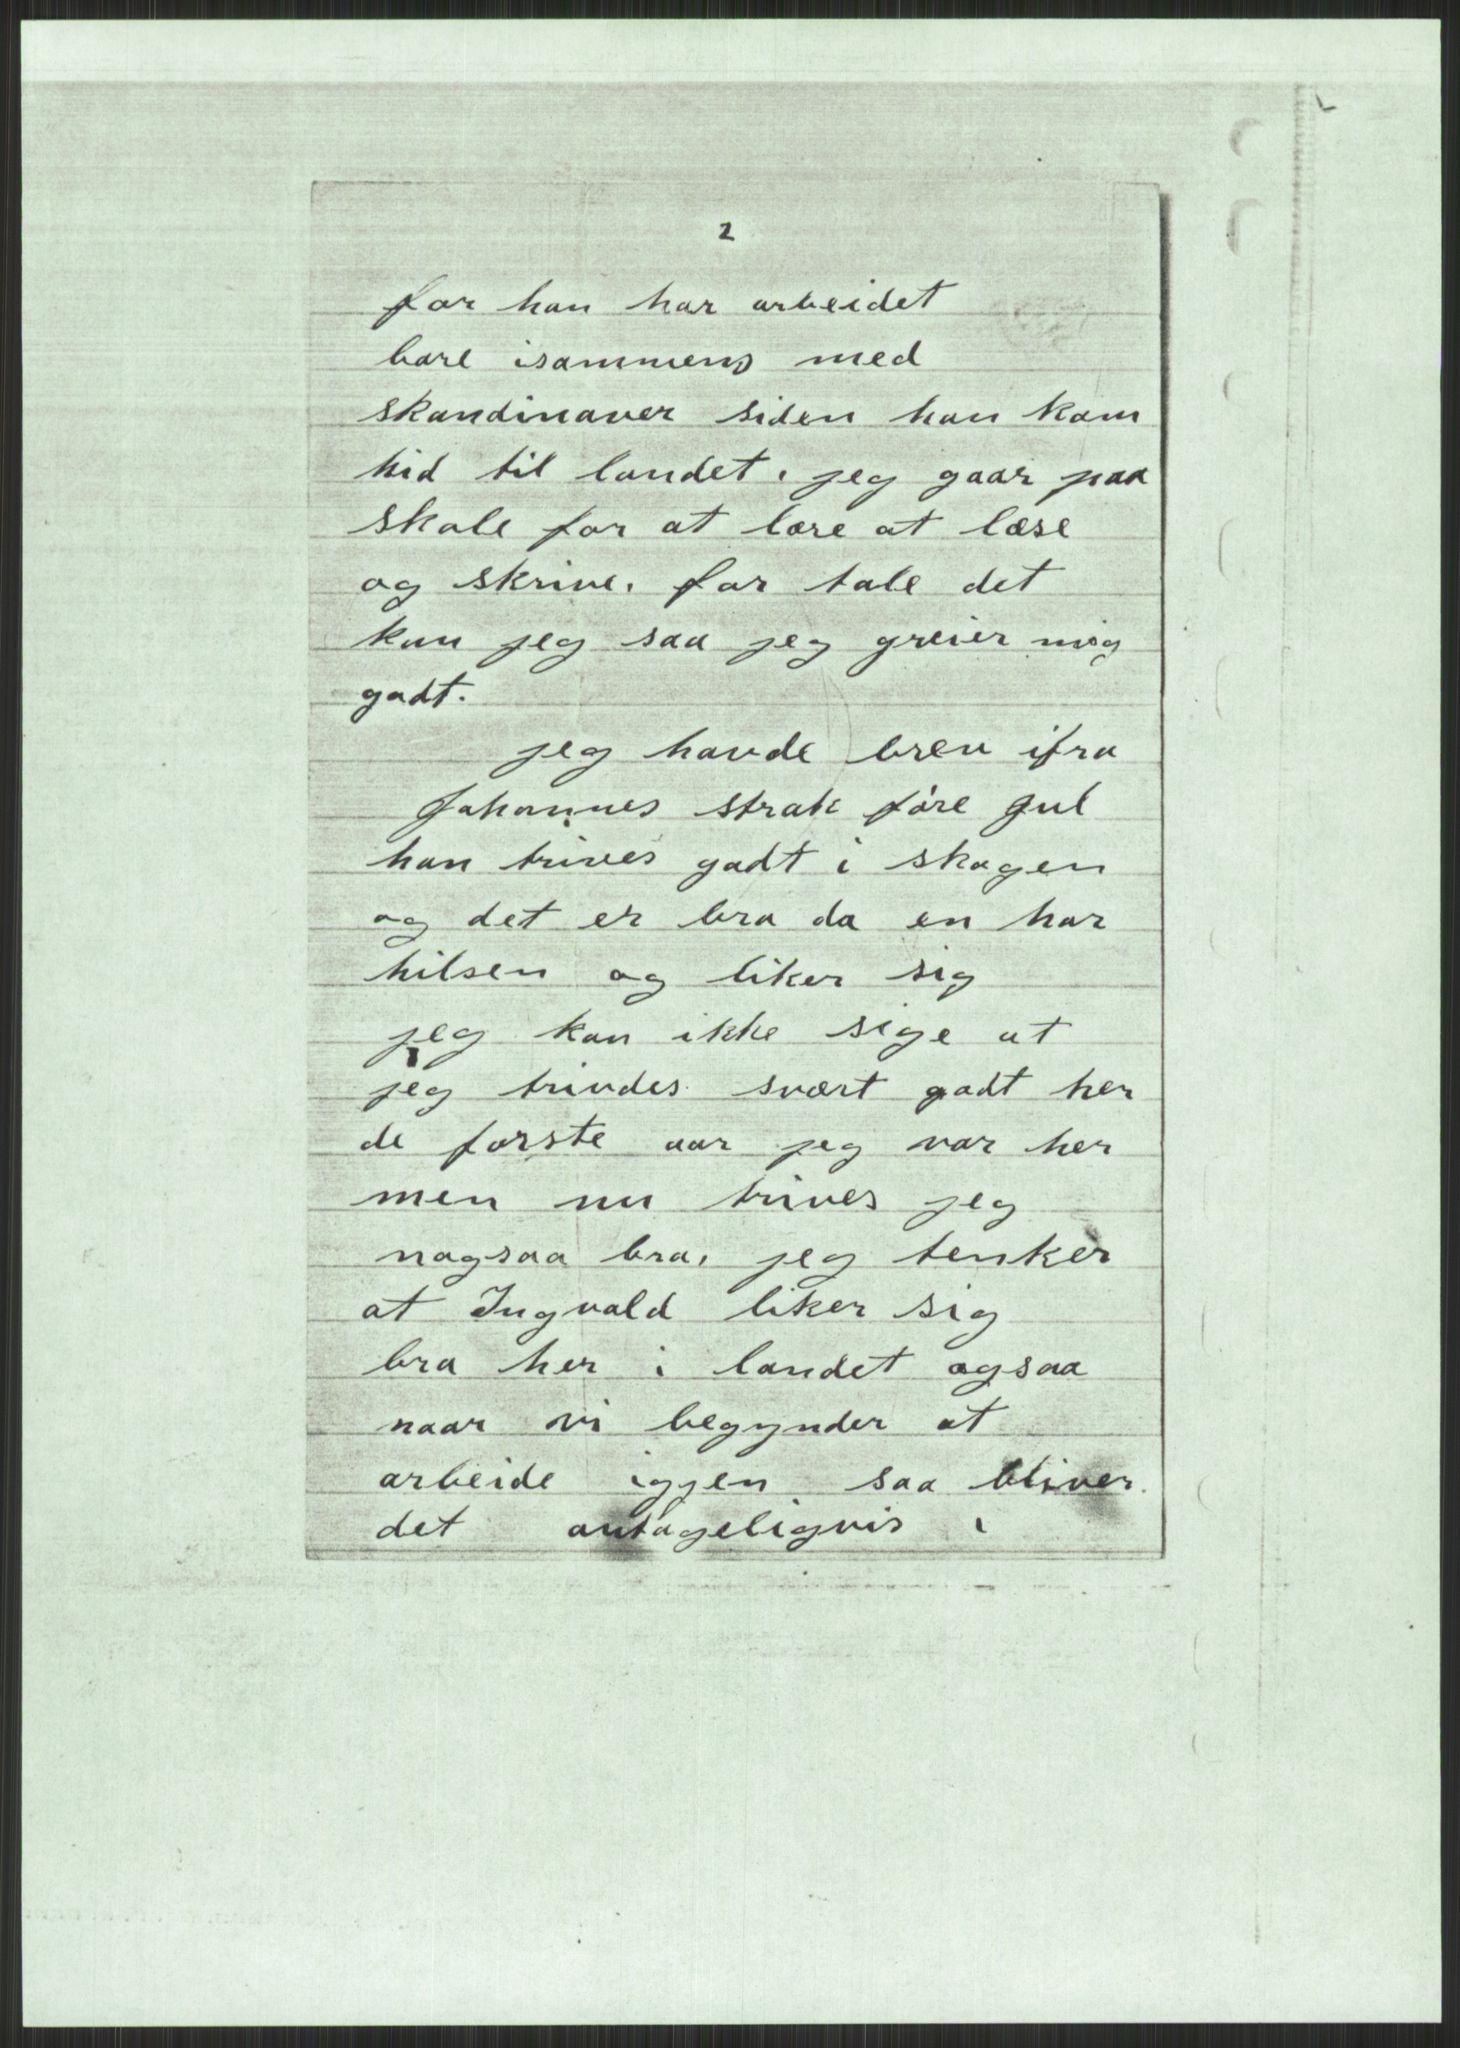 2
for han har arbeidet
bare isammens med
skandinaver siden han kom
hid til landet. jeg gaar paa
skole for at lære at læse
og skrive. for tale det
kan jeg saa jeg greier mig
godt.
jeg havde brev ifra
Johannes strak føre Jul
han trives godt i skogen
og det er bra da en har
hilsen og liker sig
jeg kan ikke sige at
jeg trivdes svært godt her
de forste aar jeg var her
men nu trives jeg
nogsaa bra. jeg tenker
at Ingvald liker sig
bra her i landet ogsaa
naar vi begynder at
arbeide iggen saa bliver
det antageligvis i